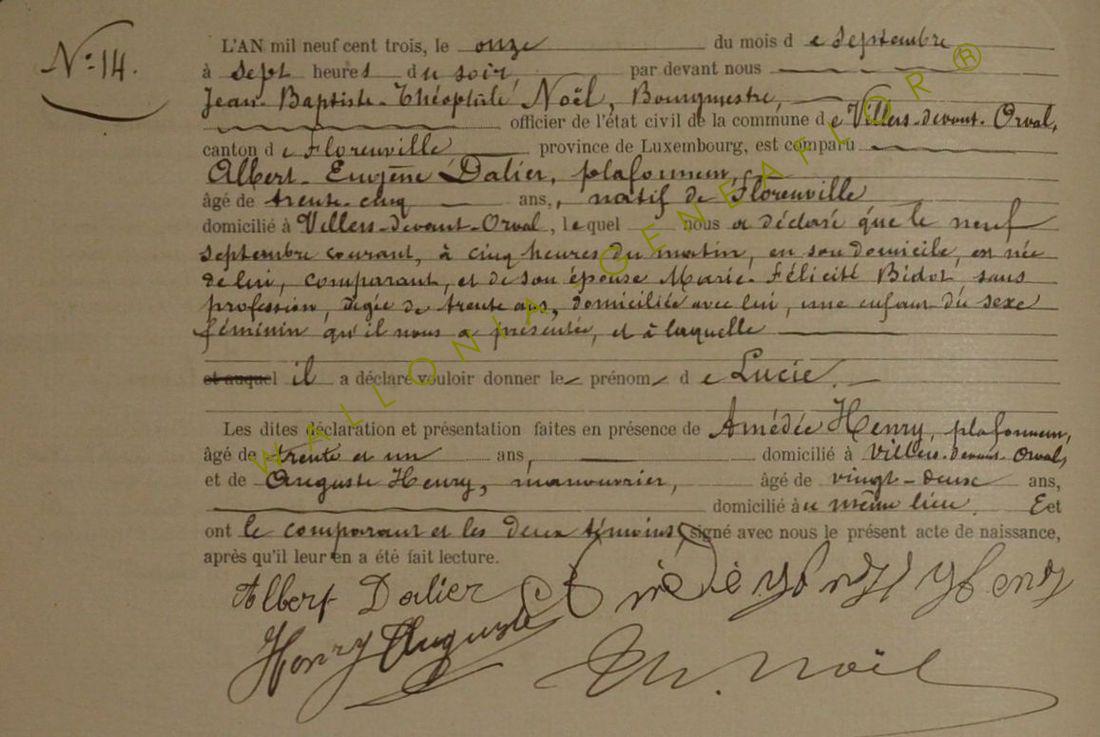 N° 14.
L'AN mil neuf cent trois, le onze du mois de septembre
à sept heures du soir, par devant nous
Jean-Baptiste-Théophile Noël, Bourgmestre,
officier de l'état civil de la commune de Villers-devant-Orval,
canton de Florenville province de Luxembourg, est comparu
Albert-Eugène Dalier, plafonneur,
âgé de trente-cinq ans, natif de Florenville
domicilié à Villers-devant-Orval, lequel nous a déclaré que le neuf
septembre courant, à cinq heures du matin, en son domicile, est née
de lui, comparant, et de son épouse Marie-Félicité Bidot sans
profession, âgée de trente ans, domiciliée avec lui, une enfant du sexe
féminin qu'il nous a présentée, et à laquelle
et auquel il a déclaré vouloir donner le prénom de Lucie.
Les dites déclaration et présentation faites en présence de Amédée Henry, plafonneur,
âgé de trente et un ans, domicilié à Villers-devant-Orval,
et de Auguste Henry, manouvrier, âgé de vingt-deux ans,
domicilié au même lieu. Et
ont le comparant et les deux témoins, signé avec nous le présent acte de naissance,
après qu'il leur en a été fait lecture.
Albert Dalier Henry
Henry Auguste
Th. Noël
WALLONIA GENEAFLOR ®